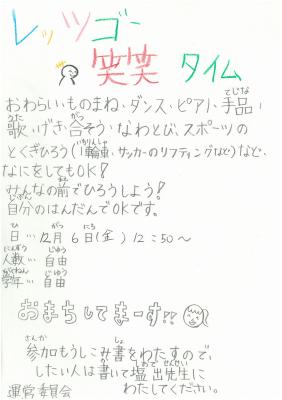 レッツゴー
笑笑 タイム
おわらい・ものまね・ダンス・ピアノ・手品・
歌・げき・合そう・なわとび、スポーツの
とくぎひろう(1輪車、サッカーのリフティングなど)など、
なにをしてもOK!
みんなの前でひろうしよう!
自分のはんだんでOKです。
日…12月6日(金) 12:50～
人数…自由
学年…自由
おまちしてまーす!!
参加もうしこみ書をわたすので、
したい人は書いて塩出先生に
わたしてください。
運営委員会